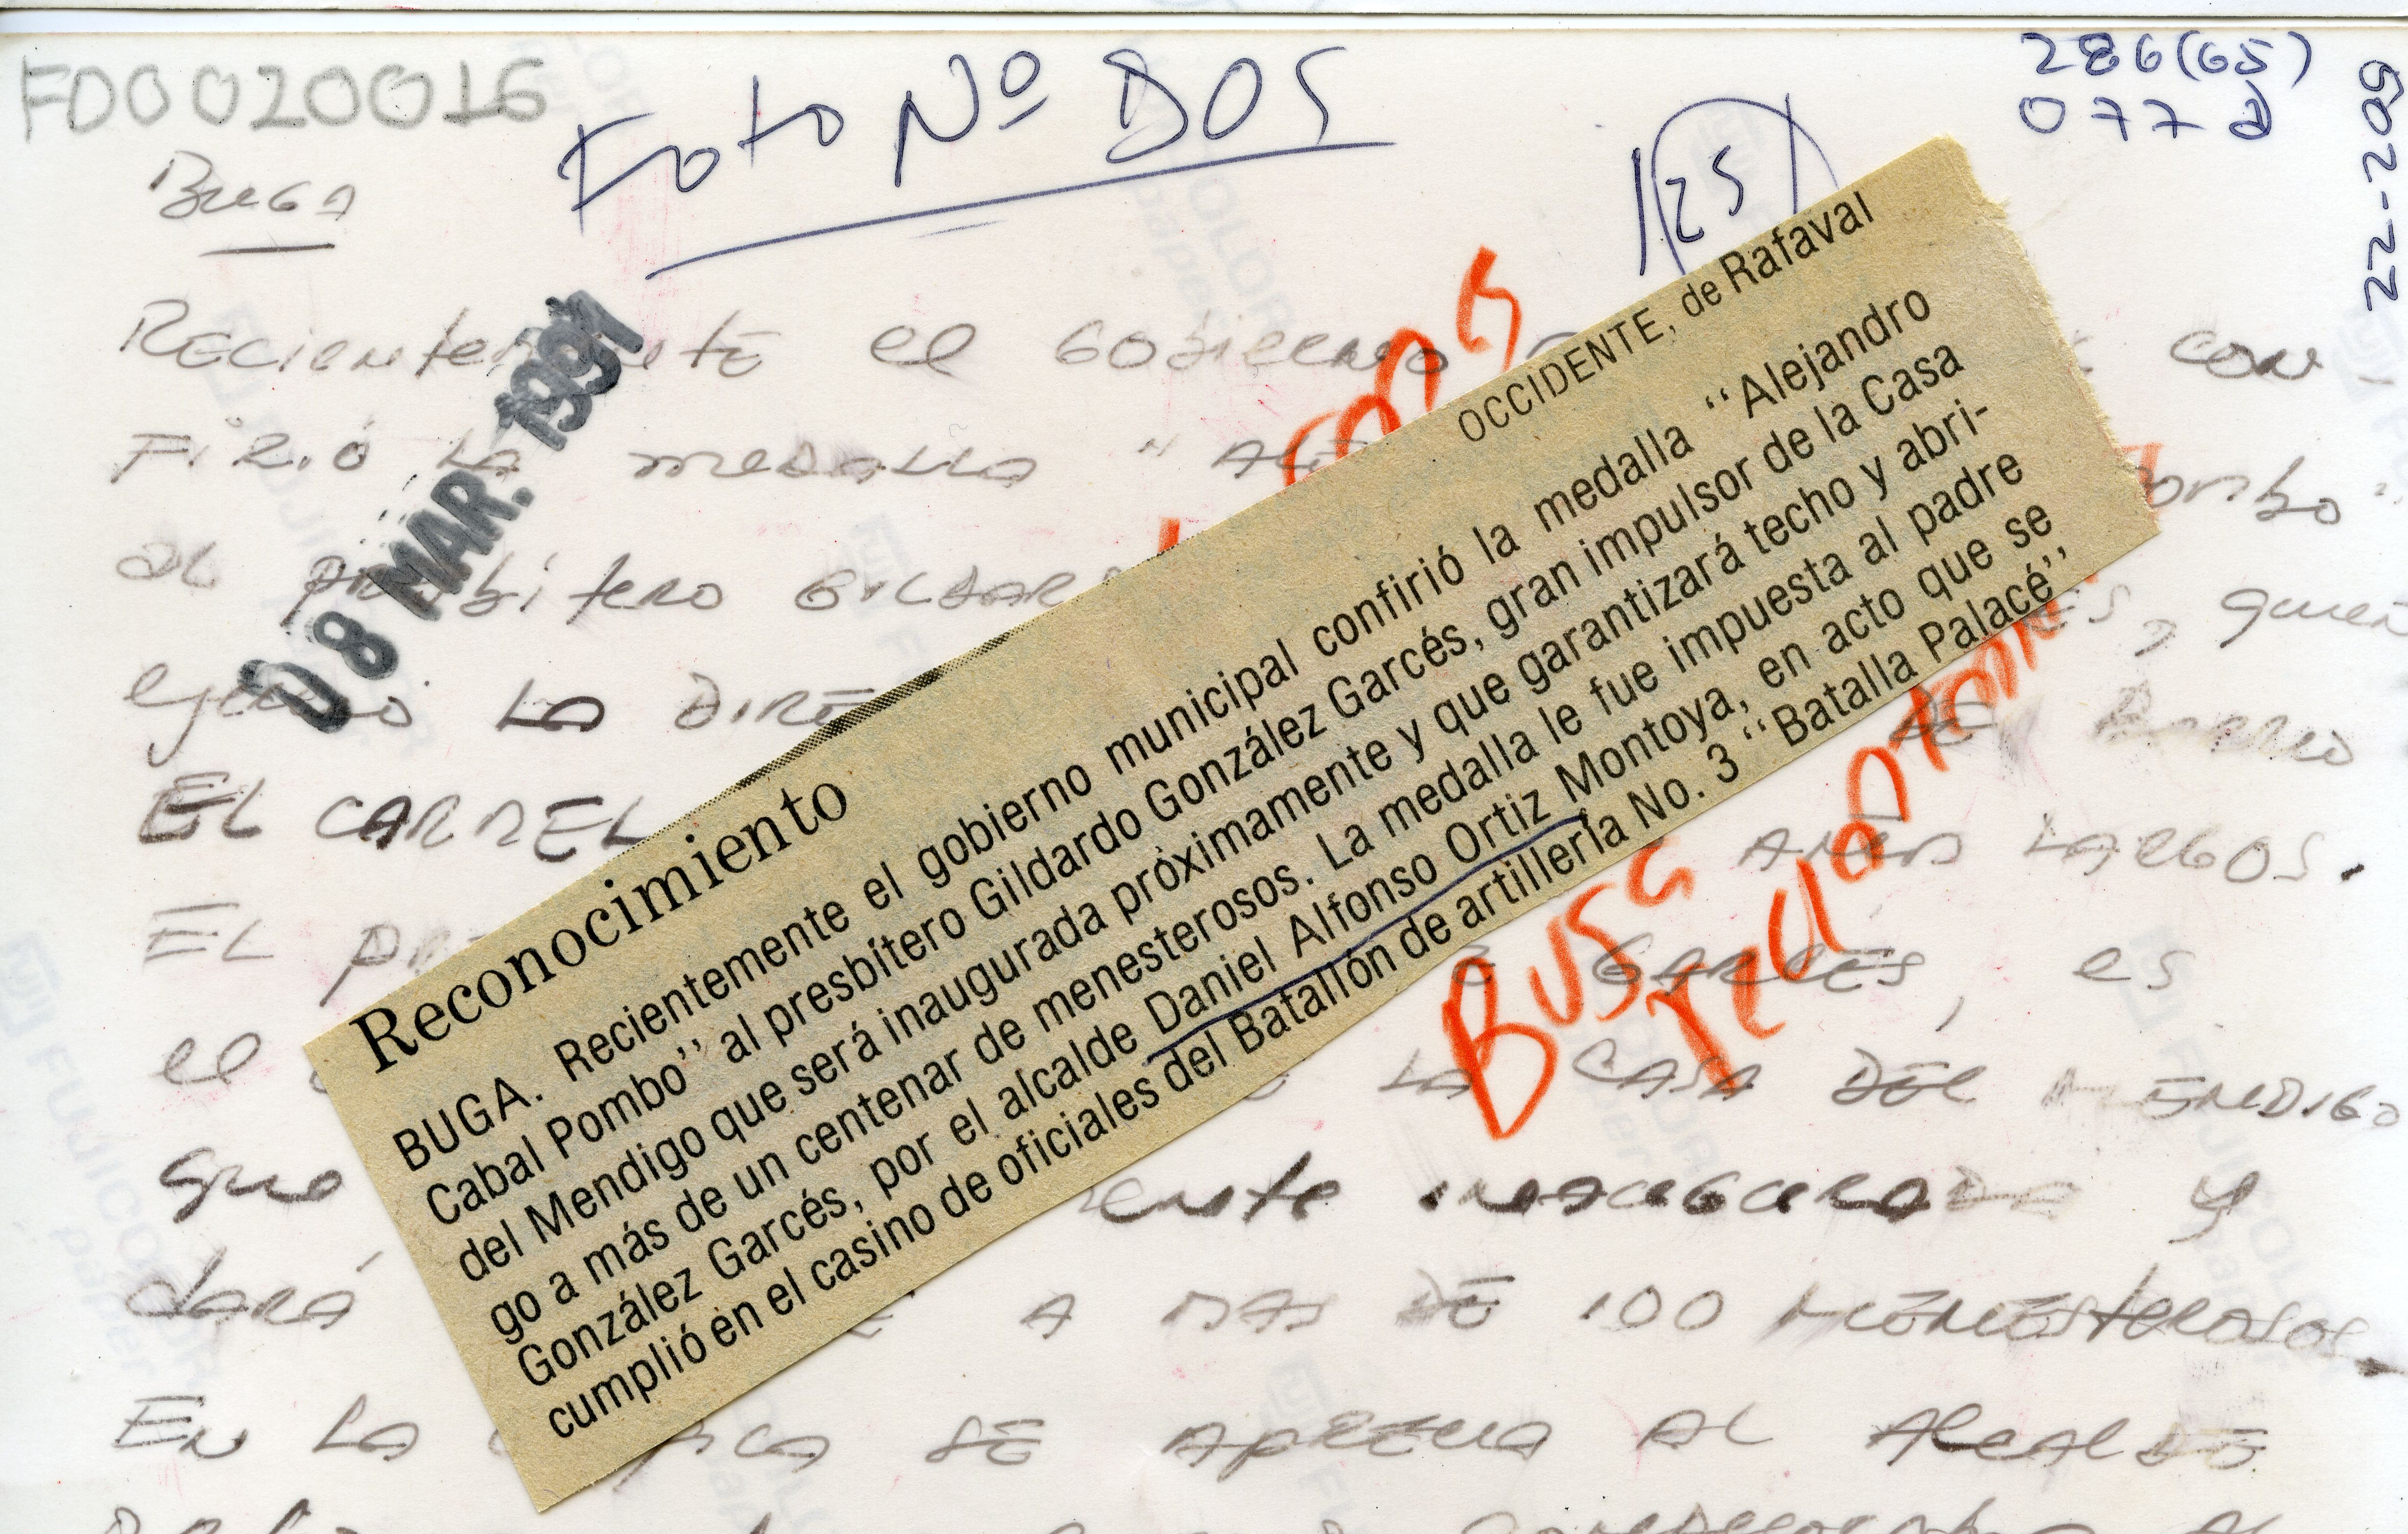 FD0020016
Foto Nº DOS
286(65)
077
22-209
25
Buga
Recientemente el Gobierno con-
firió la medalla "Ale ombo"
al presbítero Gildar es, quien
ejerció la Dire del Barrio
EL CARMEL años largos.
EL pr Garcés, es
el la Casa del Mendigo
que mente inaugurada y
dará a mas de 100 menesterosos.
En la ica se aprecia al Alcalde
08 MAR. 1991
Buga
OCCIDENTE, de Rafaval
Reconocimiento
BUGA. Recientemente el gobierno municipal confirió la medalla "Alejandro
Cabal Pombo" al presbítero Gildardo González Garcés, gran impulsor de la Casa
del Mendigo que será inaugurada próximamente y que garantizará techo y abri-
go a más de un centenar de menesterosos. La medalla le fue impuesta al padre
González Garcés, por el alcalde Daniel Alfonso Ortiz Montoya, en acto que se
cumplió en el casino de oficiales del Batallón de artillería No. 3 "Batalla Palacé",